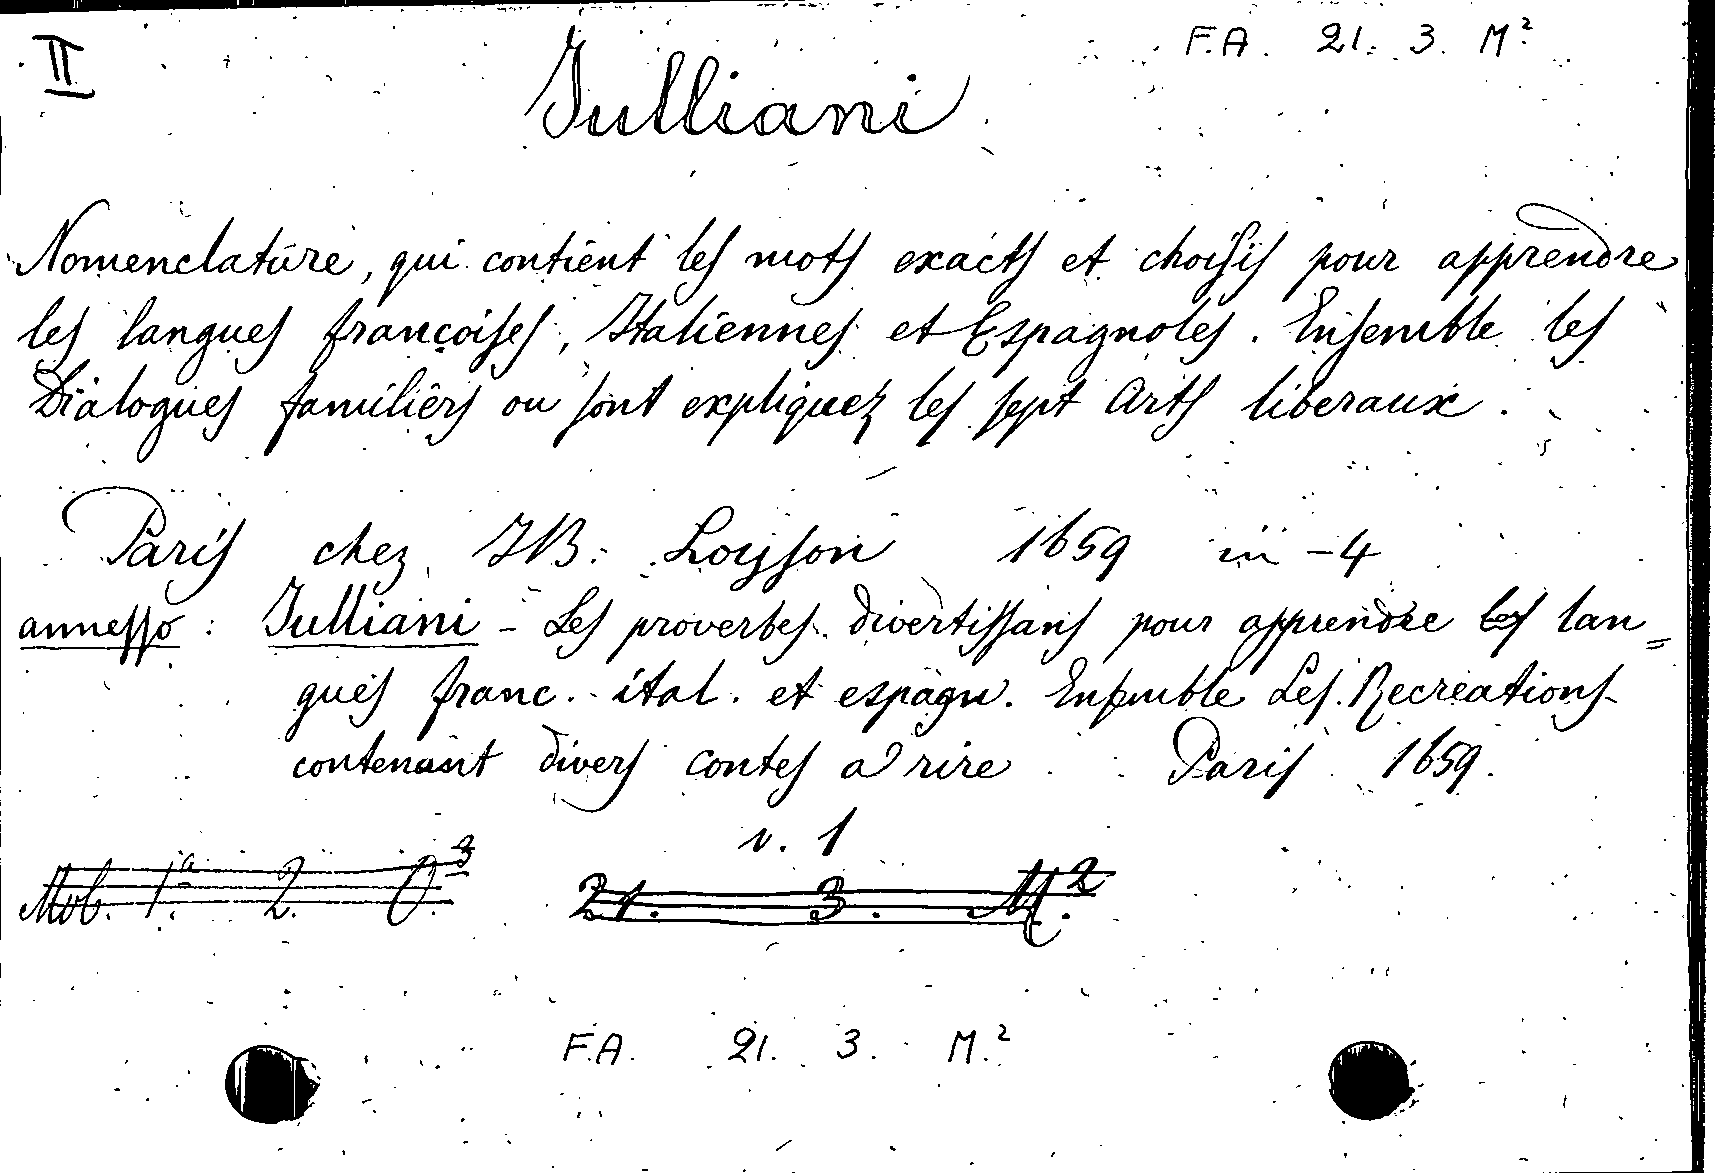 II
F.A. 21. 3. M.²
Julliani
Nomenclature, qui contient les mots exacts et choisis pour apprendre
les langues françoises, Italiennes et Espagnoles. Ensemble les
Dialogues familiers ou sont expliquez les sept Arts liberaux.
Paris chez JB. Loysson 1659 in-4
annesso: Julliani - Les proverbes divertissans pour apprendre les lan=
gues franc. ital. et espagn. Ensemble Les Recreations
contenant divers contes a rire Paris 1659.
v. 1
Mob. 1.ª 2. O.³ 21. 3. M.²
F.A. 21. 3. M.²